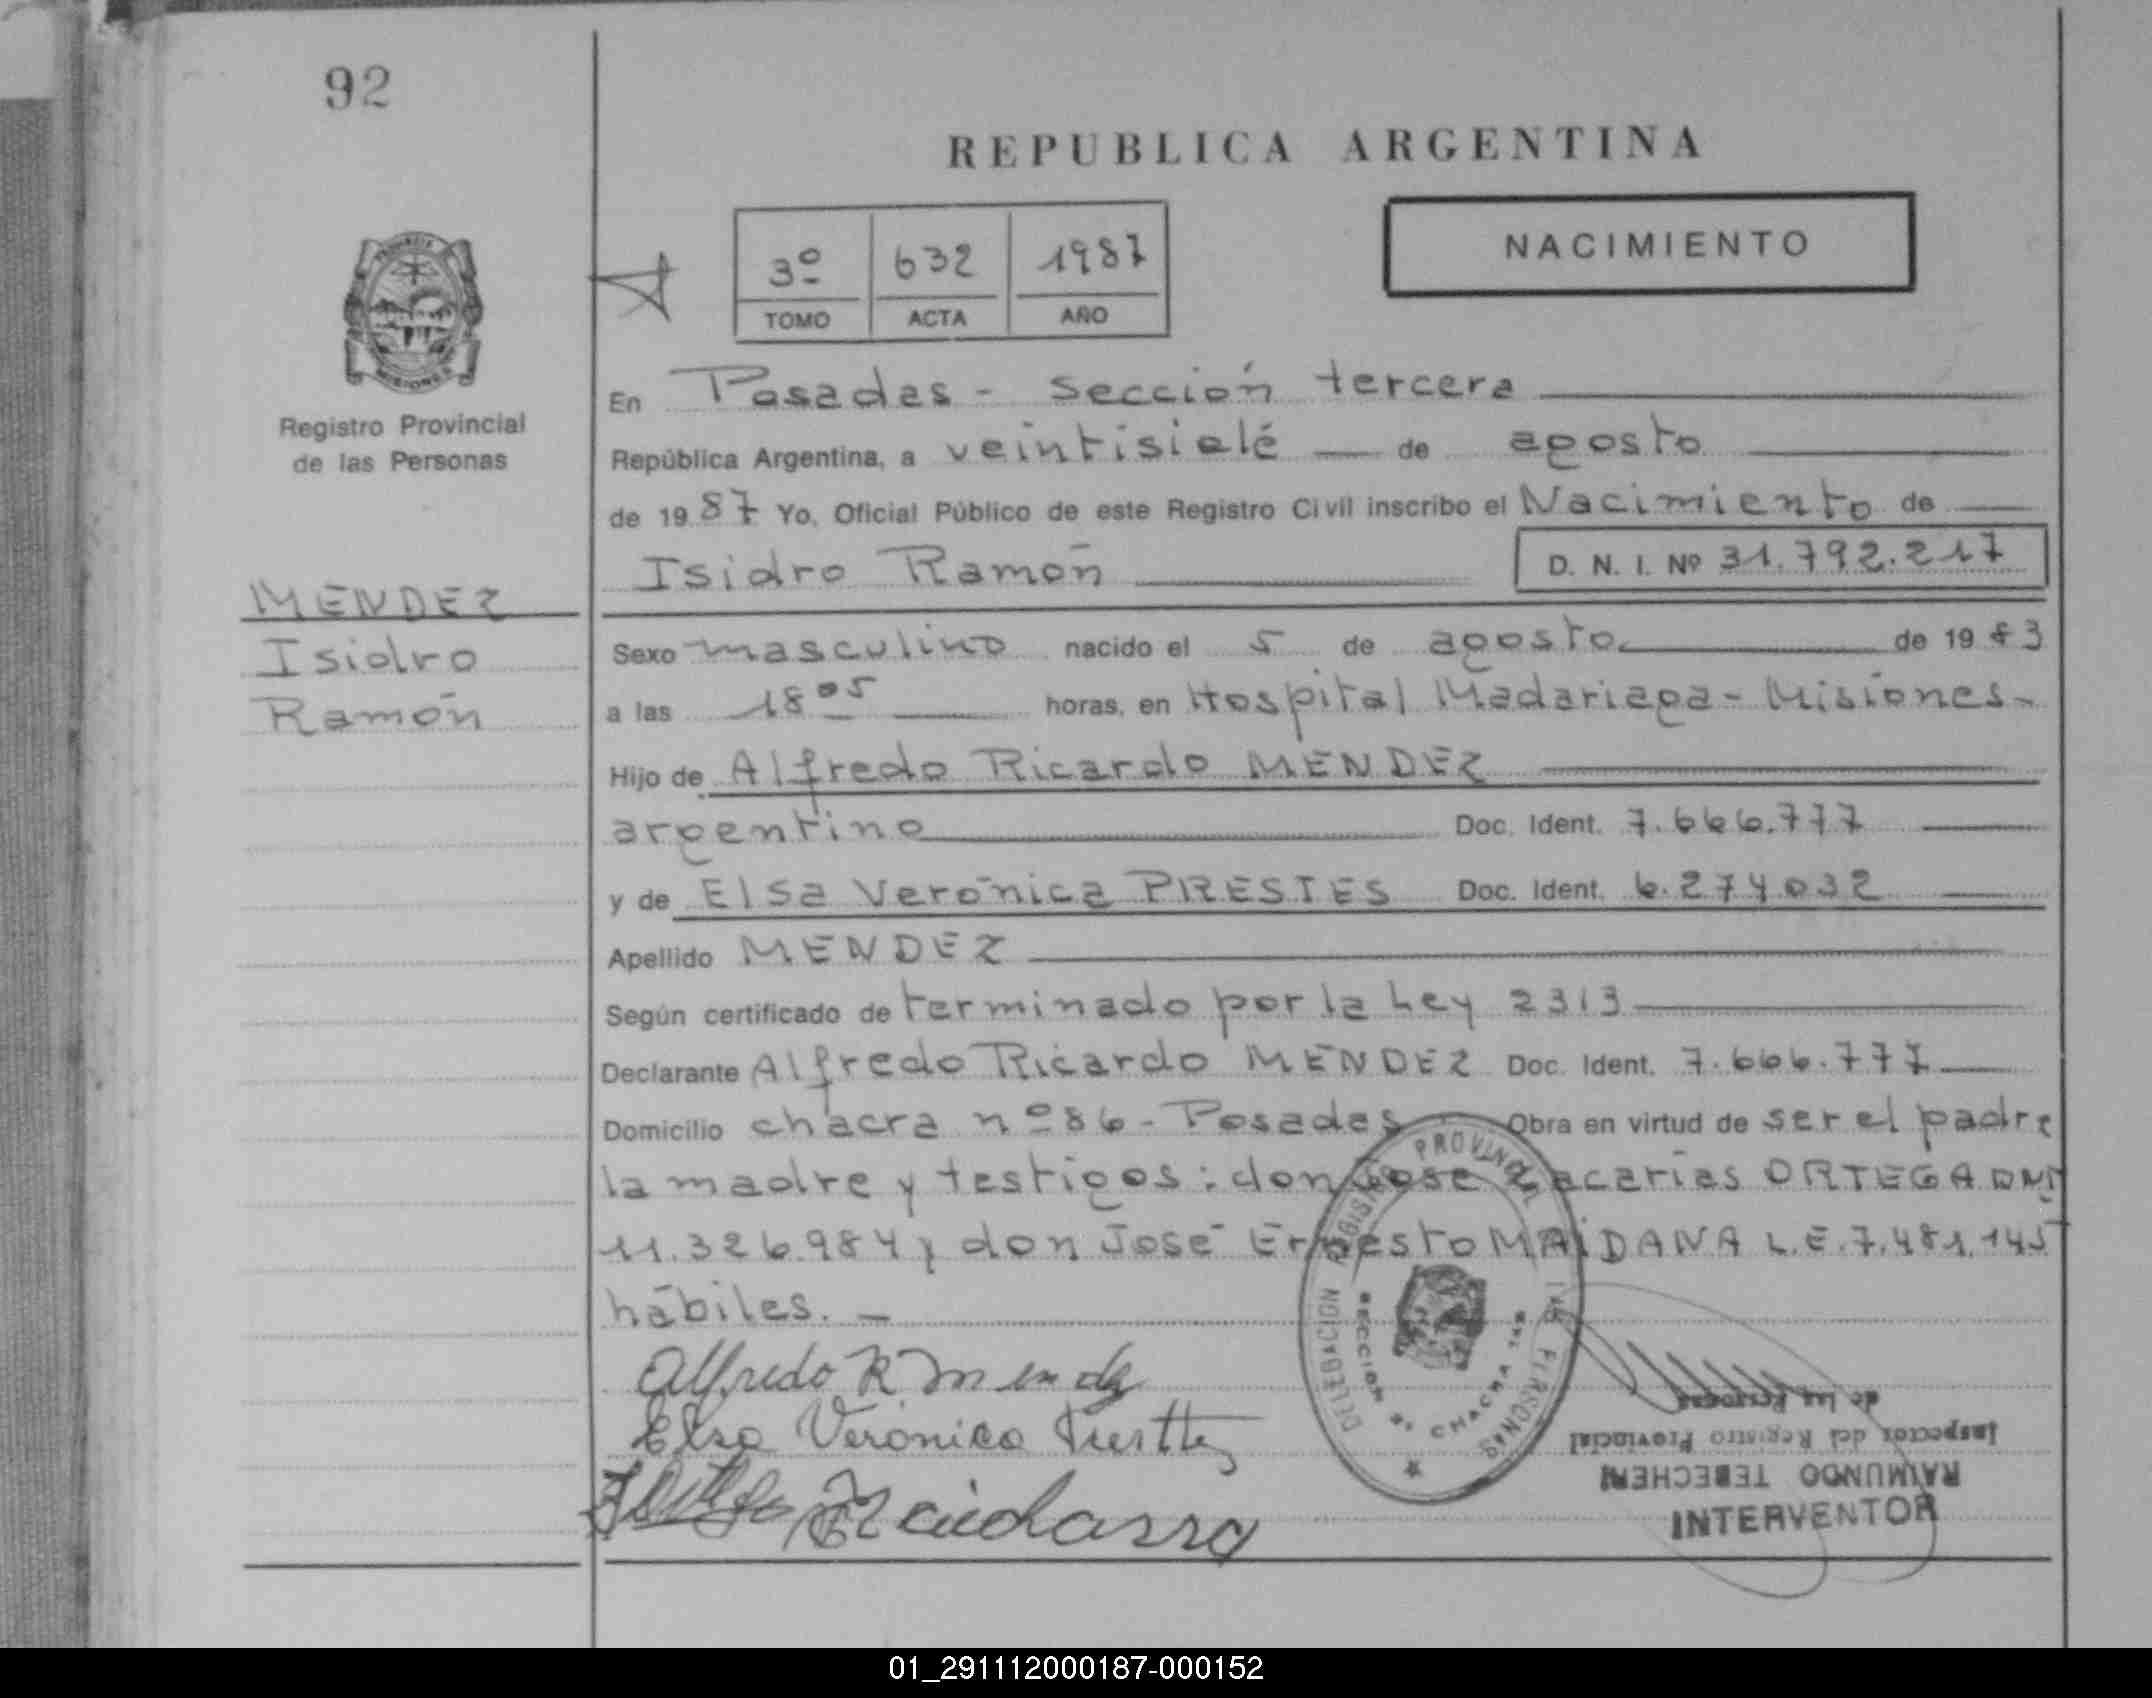 92
REPUBLICA ARGENTINA
3º 632 1987
TOMO ACTA AÑO
NACIMIENTO
MISIONES
Registro Provincial
de las Personas
MENDEZ
Isidro
Ramón
En Posadas - Sección tercera
República Argentina, a veintisiete de agosto
de 1987 Yo, Oficial Público de este Registro Civil inscribo el Nacimiento de
Isidro Ramón D. N. I. Nº 31.792.217
Sexo masculino nacido el 5 de agosto de 1983
a las 18 05 horas, en Hospital Madariaga - Misiones -
Hijo de Alfredo Ricardo MENDEZ
argentino Doc. Ident. 7.666.777
y de Elsa Verónica PRESTES Doc. Ident. 6.274.032
Apellido MENDEZ
Según certificado de terminado por la Ley 2313
Declarante Alfredo Ricardo MENDEZ Doc. Ident. 7.666.777
Domicilio chacra nº 86 - Posadas Obra en virtud de ser el padre
la madre y testigos: don José Zacarías ORTEGA DNI
11.326.984 y don José Ernesto MAIDANA L.E. 7.481.145
hábiles. -
Alfredo R Mendez
Elsa Verónica
DELEGACION REGISTRO PROVINCIAL PERSONAS
SECCION 3ª CHACRA
de las Personas
Inspector del Registro Provincial
RAIMUNDO TEBECHERI
INTERVENTOR
01_291112000187-000152